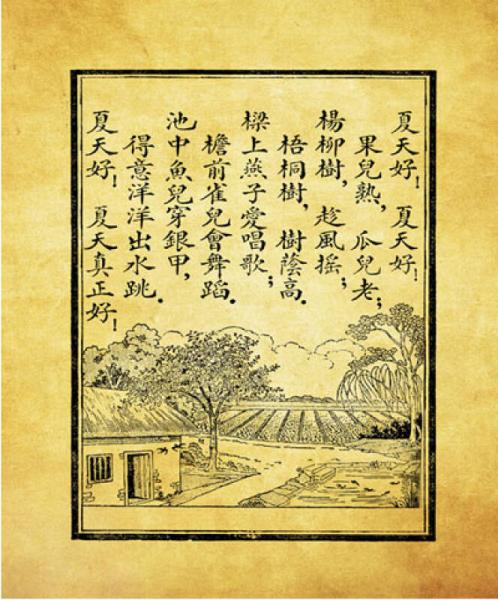 夏天好！夏天好！
果兒熟，瓜兒老；
楊柳樹，趁風搖；
梧桐樹，樹蔭高．
樑上燕子愛唱歌；
檐前雀兒會舞蹈．
池中魚兒穿銀甲，
得意洋洋出水跳．
夏天好！夏天真正好！